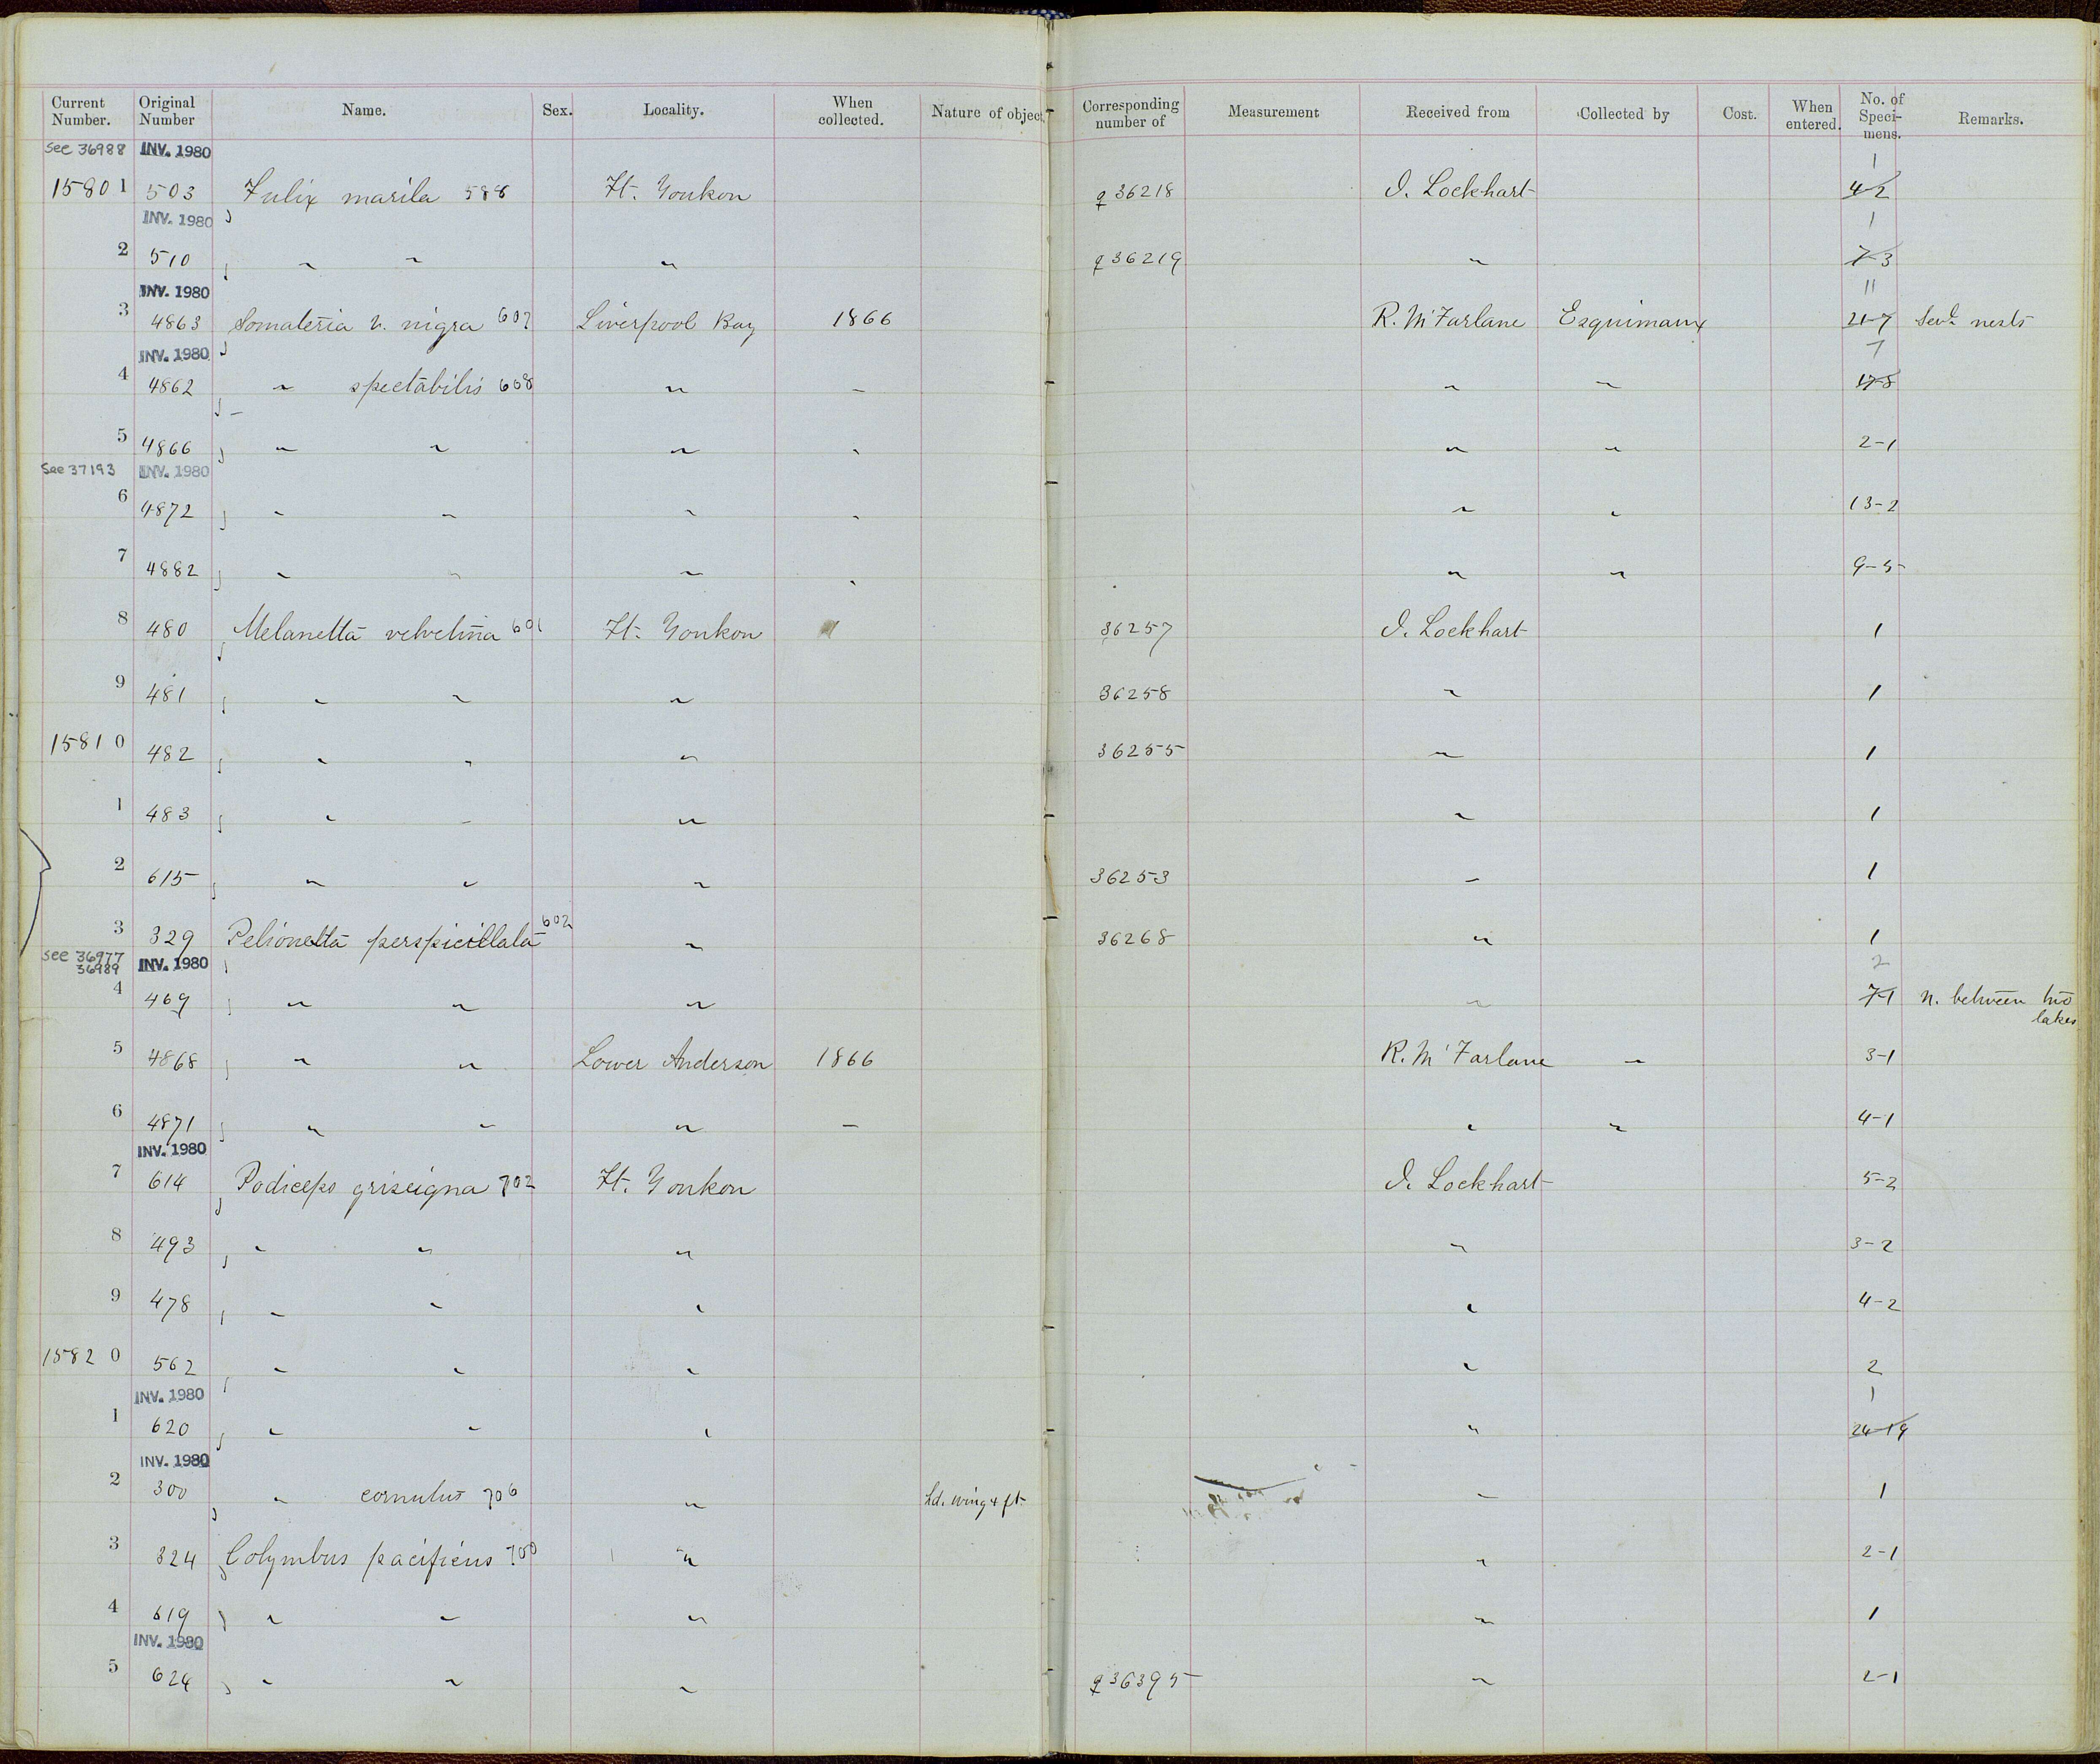 Current Number. Original Number Name. Sex. Locality. When collected. Nature of object Corresponding number of Measurement Received from Collected by Cost. When entered. No. of Speci-mens. Remarks.
See 36988 INV. 1980 1
15801 503 Fulix marila 588 Ft. Youkon ♀ 36218 I. Lockhart 4-2
INV. 1980 1
2 510 " " " ♀ 36219 " 7-3
INV. 1980 11
3 4863 Somateria v. nigra 607 Liverpool Bay 1866 R. McFarlane Esquimaux 21-7 Sevl. nests
INV. 1980 7
4 4862 " spectabilis 608 " " " " 17-8
5 4866 " " " " " " 2-1
See 37193 INV. 1980
6 4872 " " " " " " 13-2
7 4882 " " " " " " 9-5
8 480 Melanetta velvetina 601 Ft. Youkon 36257 I. Lockhart 1
9 481 " " " 36258 " 1
15810 482 " " " 36255 " 1
1 483 " " " " 1
2 615 " " " 36253 " 1
3 329 Pelionetta perspicillata 602 " 36268 " 1
See 36977 36989 INV. 1980 2
4 469 " " " " 7-1 n. between two lakes
5 4868 " " Lower Anderson 1866 R. McFarlane " 3-1
6 4871 " " " " " " 4-1
INV. 1980
7 614 Podiceps griseigna 702 Ft. Youkon I. Lockhart 5-2
8 493 " " " " 3-2
9 478 " " " " 4-2
15820 562 " " " " 2
INV. 1980 1
1 620 " " " " 24-19
INV. 1980
2 300 " cornutus 706 " hd. wing & ft. " 1
3 324 Colymbus pacificus 700 " " 2-1
4 619 " " " " 1
INV. 1980
5 624 " " " ♀ 36395 " 2-1